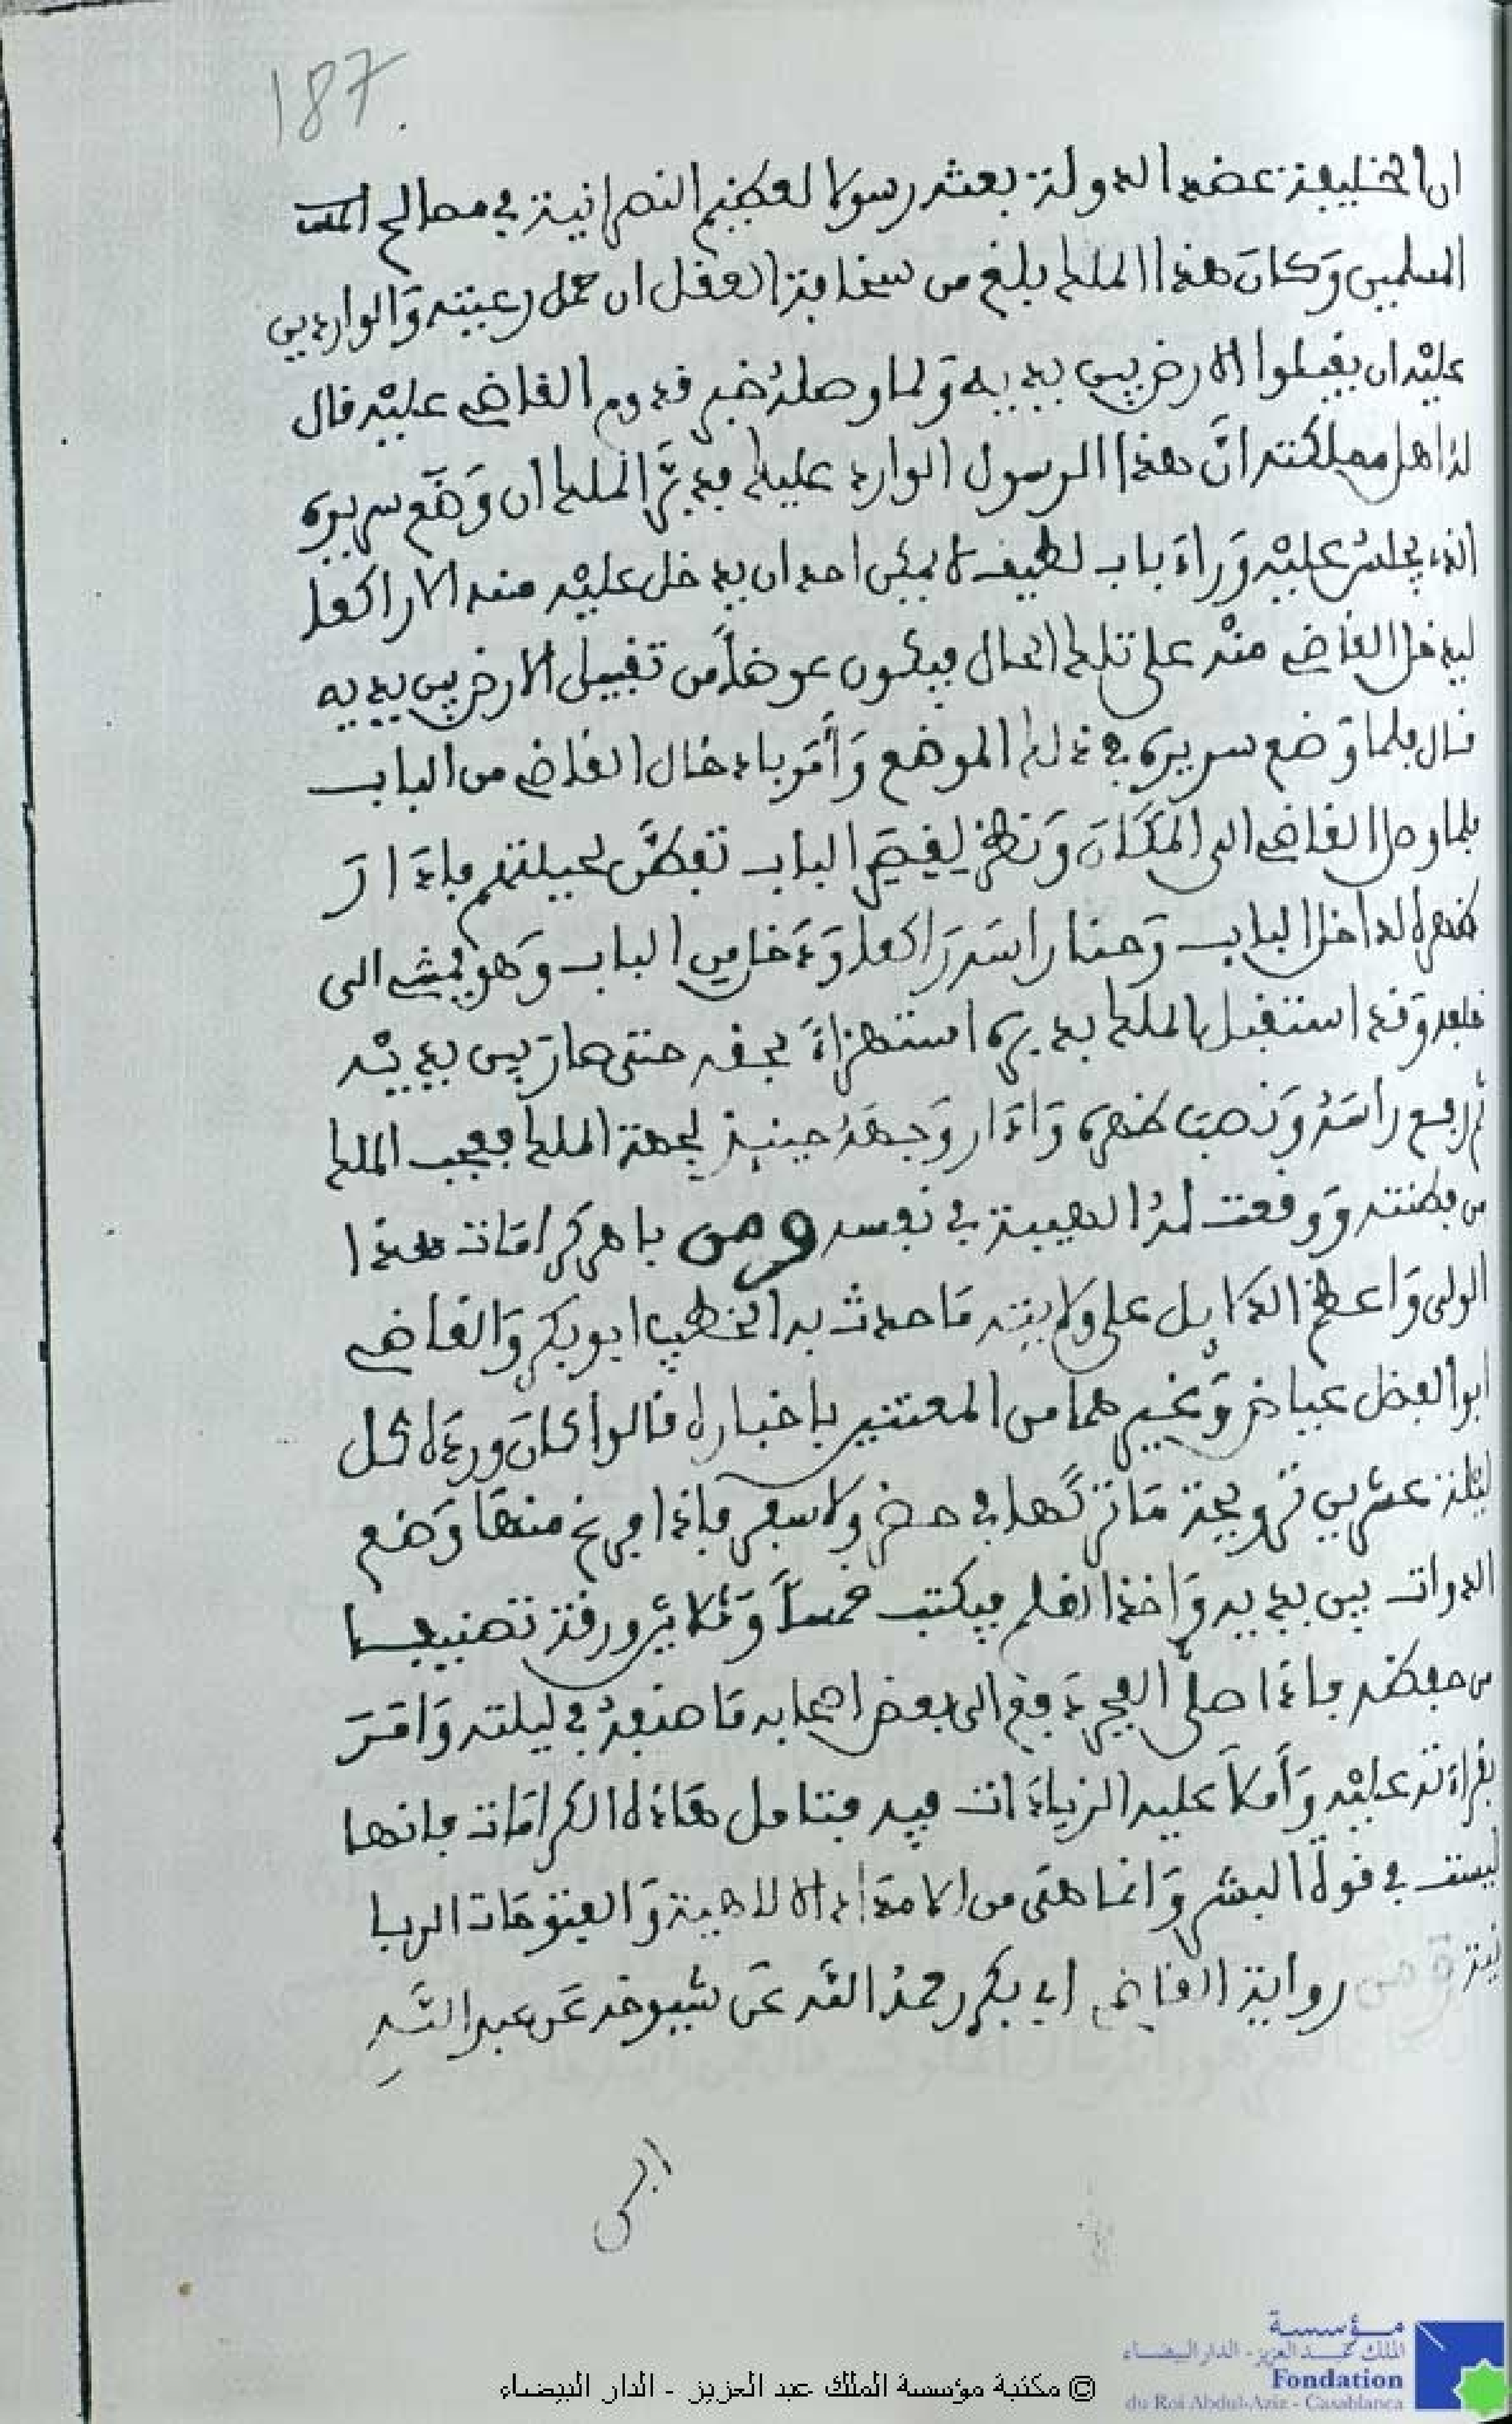 187
ان الخليفة عضد الدولة بعثه رسولا لعظيم النصرانية في مصالح
المسلمين وَكانَ هذا الملك بلغ من سخافة العقل ان حمل رعيته وَالواردين
عليْه ان يقبلوا الارض بين يديه وَلما وصلهُ خبر قدوم القاضي عليْه قال
لاهل مملكته انَّ هذا الرسول الوارد عليك فدبَّر الملك ان وَضَع سريره
الذي يجلسُ عليْه وَراءَ باب لطيف لا يمكن احد ان يدخل عليْه منه الا راكعا
ليدخل القاضي منْه على تلك الحال فيكون عوضاً من تقبيل الارض بين يديه
قال فلما وَضع سريره في ذلك الموضع وَأمَر بادخال القاضي من الباب
فلما وصل القاضي الى المَكَانَ وَنظر لقصر الباب تفطَّن لحيلتهم فادَارَ
ظهره لداخل الباب وَحنا راسَه رَاكعا وَدَخل من الباب وَهو يمشي الى
خلفه وَقد استقبل الملك بدبره استهزاءً بحقه حتى صارَ بين يديْه
ثم رفع راسَهُ وَنصبَ ظهره وَادَار وَجهَهُ حينئذ لجهة الملك فعجب الملك
من فطنته وَوقعت لهُ الهيبة في نفسه ومن باهر كرامَات هذا
الولي وَاعظم الدلايل على ولايته مَا حدث به الخطيب ابو بكر وَالقاضي
ابو الفضل عياض وَغيرهما من المعتنين باخباره قالوا كانَ ورده كل
ليلة عشرين ترويحة مَا تركَها في حضر ولا سفر فاذا فرغ منهَا وَضع
الدوات بين يديه وَاخذ القلم فيكتب خمساً وَثلاثين ورقة تصنيفا
من حفظه فاذا صلى الفجر دَفع الى بعض اصحابه مَا صنفهُ في ليلته وَامَرَ
بقراءته عليْه وَأملأ عليه الزيادَات فيه فتامل هَاذه الكرامَات فانها
ليست في قوة البشر وَانما هيَ من الامدَاد الالاهية وَالفتوحَات الربا
نية وَمن رواية القاضي ابي بكر رحمهُ اللَّه عَن شيوخه عَن عبد اللَّهِ
ابن
مؤسسة
الملك عبد العزيز - الدار البيضاء
Fondation
du Roi Abdul-Aziz - Casablanca
© مكتبة مؤسسة الملك عبد العزيز - الدار البيضاء